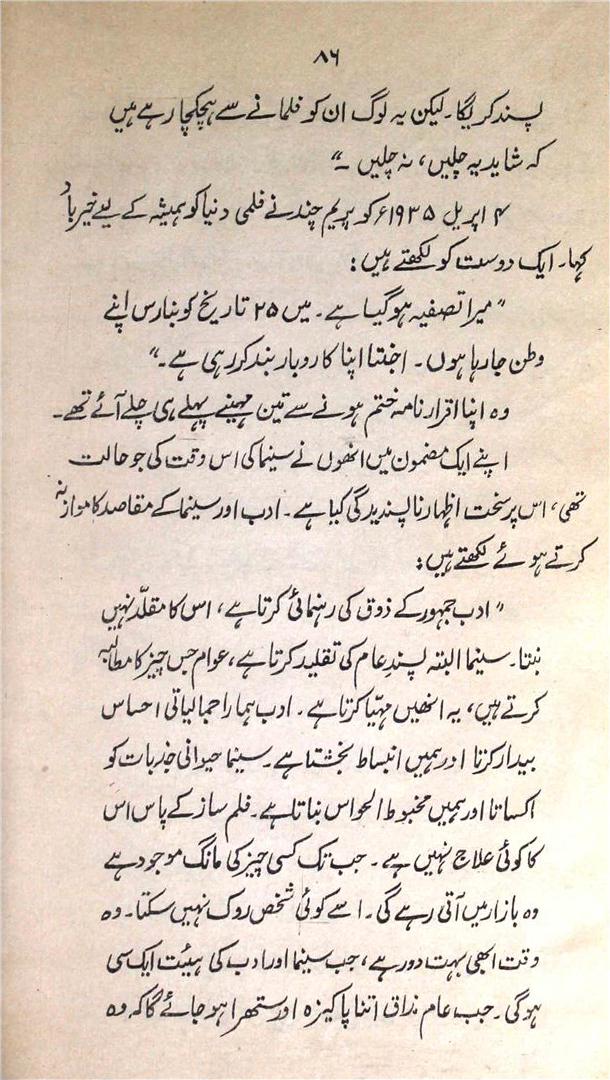 ۸۶
پسند کریگا۔ لیکن یہ لوگ ان کو فلمانے سے ہچکچا رہے ہیں
کہ شاید یہ چلیں، نہ چلیں ۔“
۴ اپریل ۱۹۳۵ء کو پریم چند نے فلمی دنیا کو ہمیشہ کے لیے خیرباد
کہا۔ ایک دوست کو لکھتے ہیں:
”میرا تصفیہ ہو گیا ہے۔ میں ۲۵ تاریخ کو بنارس اپنے
وطن جا رہا ہوں۔ اجنتا اپنا کاروبار بند کر رہی ہے۔“
وہ اپنا اقرارنامہ ختم ہونے سے تین مہینے پہلے ہی چلے آئے تھے۔
اپنے ایک مضمون میں انھوں نے سینما کی اس وقت کی جو حالت
تھی، اس پر سخت اظہار ناپسندیدگی کیا ہے۔ ادب اور سینما کے مقاصد کا موازنہ
کرتے ہوئے لکھتے ہیں:
”ادب جمہور کے ذوق کی رہنمائی کرتا ہے، اس کا مقلّد نہیں
بنتا۔ سینما البتہ پسندِ عام کی تقلید کرتا ہے، عوام جس چیز کا مطالبہ
کرتے ہیں، یہ انھیں مہیّا کرتا ہے۔ ادب ہمارا جمالیاتی احساس
بیدار کرتا اور ہمیں انبساط بخشتا ہے۔ سینما حیوانی جذبات کو
اکساتا اور ہمیں مخبوط الحواس بناتا ہے۔ فلم ساز کے پاس اس
کا کوئی علاج نہیں ہے۔ جب تک کسی چیز کی مانگ موجود ہے
وہ بازار میں آتی رہے گی۔ اسے کوئی شخص روک نہیں سکتا۔ وہ
وقت ابھی بہت دور ہے، جب سینما اور ادب کی ہیئت ایک سی
ہوگی۔ جب عام مذاق اتنا پاکیزہ اور ستھرا ہو جائے گا کہ وہ